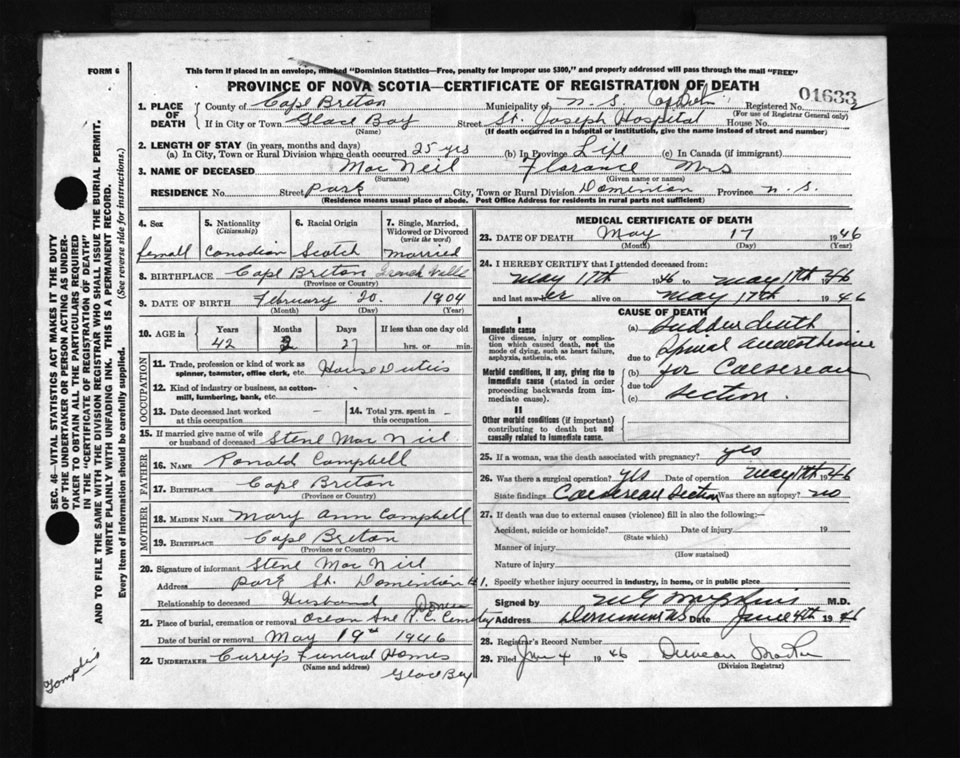 FORM 6
This form if placed in an envelope, marked "Dominion Statistics—Free, penalty for improper use $300," and properly addressed will pass through the mail "FREE"
PROVINCE OF NOVA SCOTIA—CERTIFICATE OF REGISTRATION OF DEATH
01633
1. PLACE OF DEATH
County of Cape Breton Municipality of N.S. Registered No.
(For use of Registrar General only)
If in City or Town Glace Bay Street St. Joseph Hospital House No.
(Name) (If death occurred in a hospital or institution, give the name instead of street and number)
2. LENGTH OF STAY (in years, months and days)
(a) In City, Town or Rural Division where death occurred 25 yrs (b) In Province Life (c) In Canada (if immigrant)
3. NAME OF DECEASED Mac Neil Florance Mrs
(Surname) (Given name or names)
RESIDENCE No. Street Park City, Town or Rural Division Dominion Province N.S.
(Residence means usual place of abode. Post Office Address for residents in rural parts not sufficient)
4. Sex
female
5. Nationality
(Citizenship)
Canadian
6. Racial Origin
Scotch
7. Single, Married, Widowed or Divorced
(write the word)
married
8. BIRTHPLACE Cape Breton
(Province or Country)
9. DATE OF BIRTH February 20. 1904
(Month) (Day) (Year)
10. AGE in
Years Months Days If less than one day old
42 2 27 hrs. or min.
OCCUPATION
11. Trade, profession or kind of work as spinner, teamster, office clerk, etc. House Duties
12. Kind of industry or business, as cotton-mill, lumbering, bank, etc.
13. Date deceased last worked at this occupation -
14. Total yrs. spent in this occupation -
15. If married give name of wife or husband of deceased Stene Mac Neil
FATHER
16. NAME Ronald Campbell
17. BIRTHPLACE Cape Breton
(Province or Country)
MOTHER
18. MAIDEN NAME Mary Ann Campbell
19. BIRTHPLACE Cape Breton
(Province or Country)
20. Signature of informant Stene Mac Neil
Address Park St. Dominion #1.
Relationship to deceased Husband
21. Place of burial, cremation or removal Ocean Ave R.C. Cemetery
Date of burial or removal May 19th 1946
22. UNDERTAKER Curry's Funeral Homes
(Name and address)
Glace Bay
MEDICAL CERTIFICATE OF DEATH
23. DATE OF DEATH May 17 1946
(Month) (Day) (Year)
24. I HEREBY CERTIFY that I attended deceased from:
May 17th 1946 to May 17th 1946
and last saw her alive on May 17th 1946
CAUSE OF DEATH
I
Immediate cause
Give disease, injury or complication which caused death, not the mode of dying, such as heart failure, asphyxia, asthenia, etc.
Morbid conditions, if any, giving rise to immediate cause (stated in order proceeding backwards from immediate cause).
II
Other morbid conditions (if important) contributing to death but not causally related to immediate cause.
(a) Sudden death
due to Spinal Anaesthesia
(b) for Caesereau
due to
(c) Section.
25. If a woman, was the death associated with pregnancy? yes
26. Was there a surgical operation? yes Date of operation May 17th 46
State findings Caesereau Section Was there an autopsy? no
27. If death was due to external causes (violence) fill in also the following:—
Accident, suicide or homicide? Date of injury 19
(State which)
Manner of injury
(How sustained)
Nature of injury
Specify whether injury occurred in industry, in home, or in public place
Signed by M.D.
Address Date June 4th 1946
28. Registrar's Record Number
29. Filed June 4 1946 Duncan
(Division Registrar)
SEC. 46—VITAL STATISTICS ACT MAKES IT THE DUTY
OF THE UNDERTAKER OR PERSON ACTING AS UNDER-
TAKER TO OBTAIN ALL THE PARTICULARS REQUIRED
IN THE "CERTIFICATE OF REGISTRATION OF DEATH"
AND TO FILE THE SAME WITH THE DIVISION REGISTRAR WHO SHALL ISSUE THE BURIAL PERMIT.
WRITE PLAINLY WITH UNFADING INK. THIS IS A PERMANENT RECORD.
Every item of information should be carefully supplied. (See reverse side for instructions.)